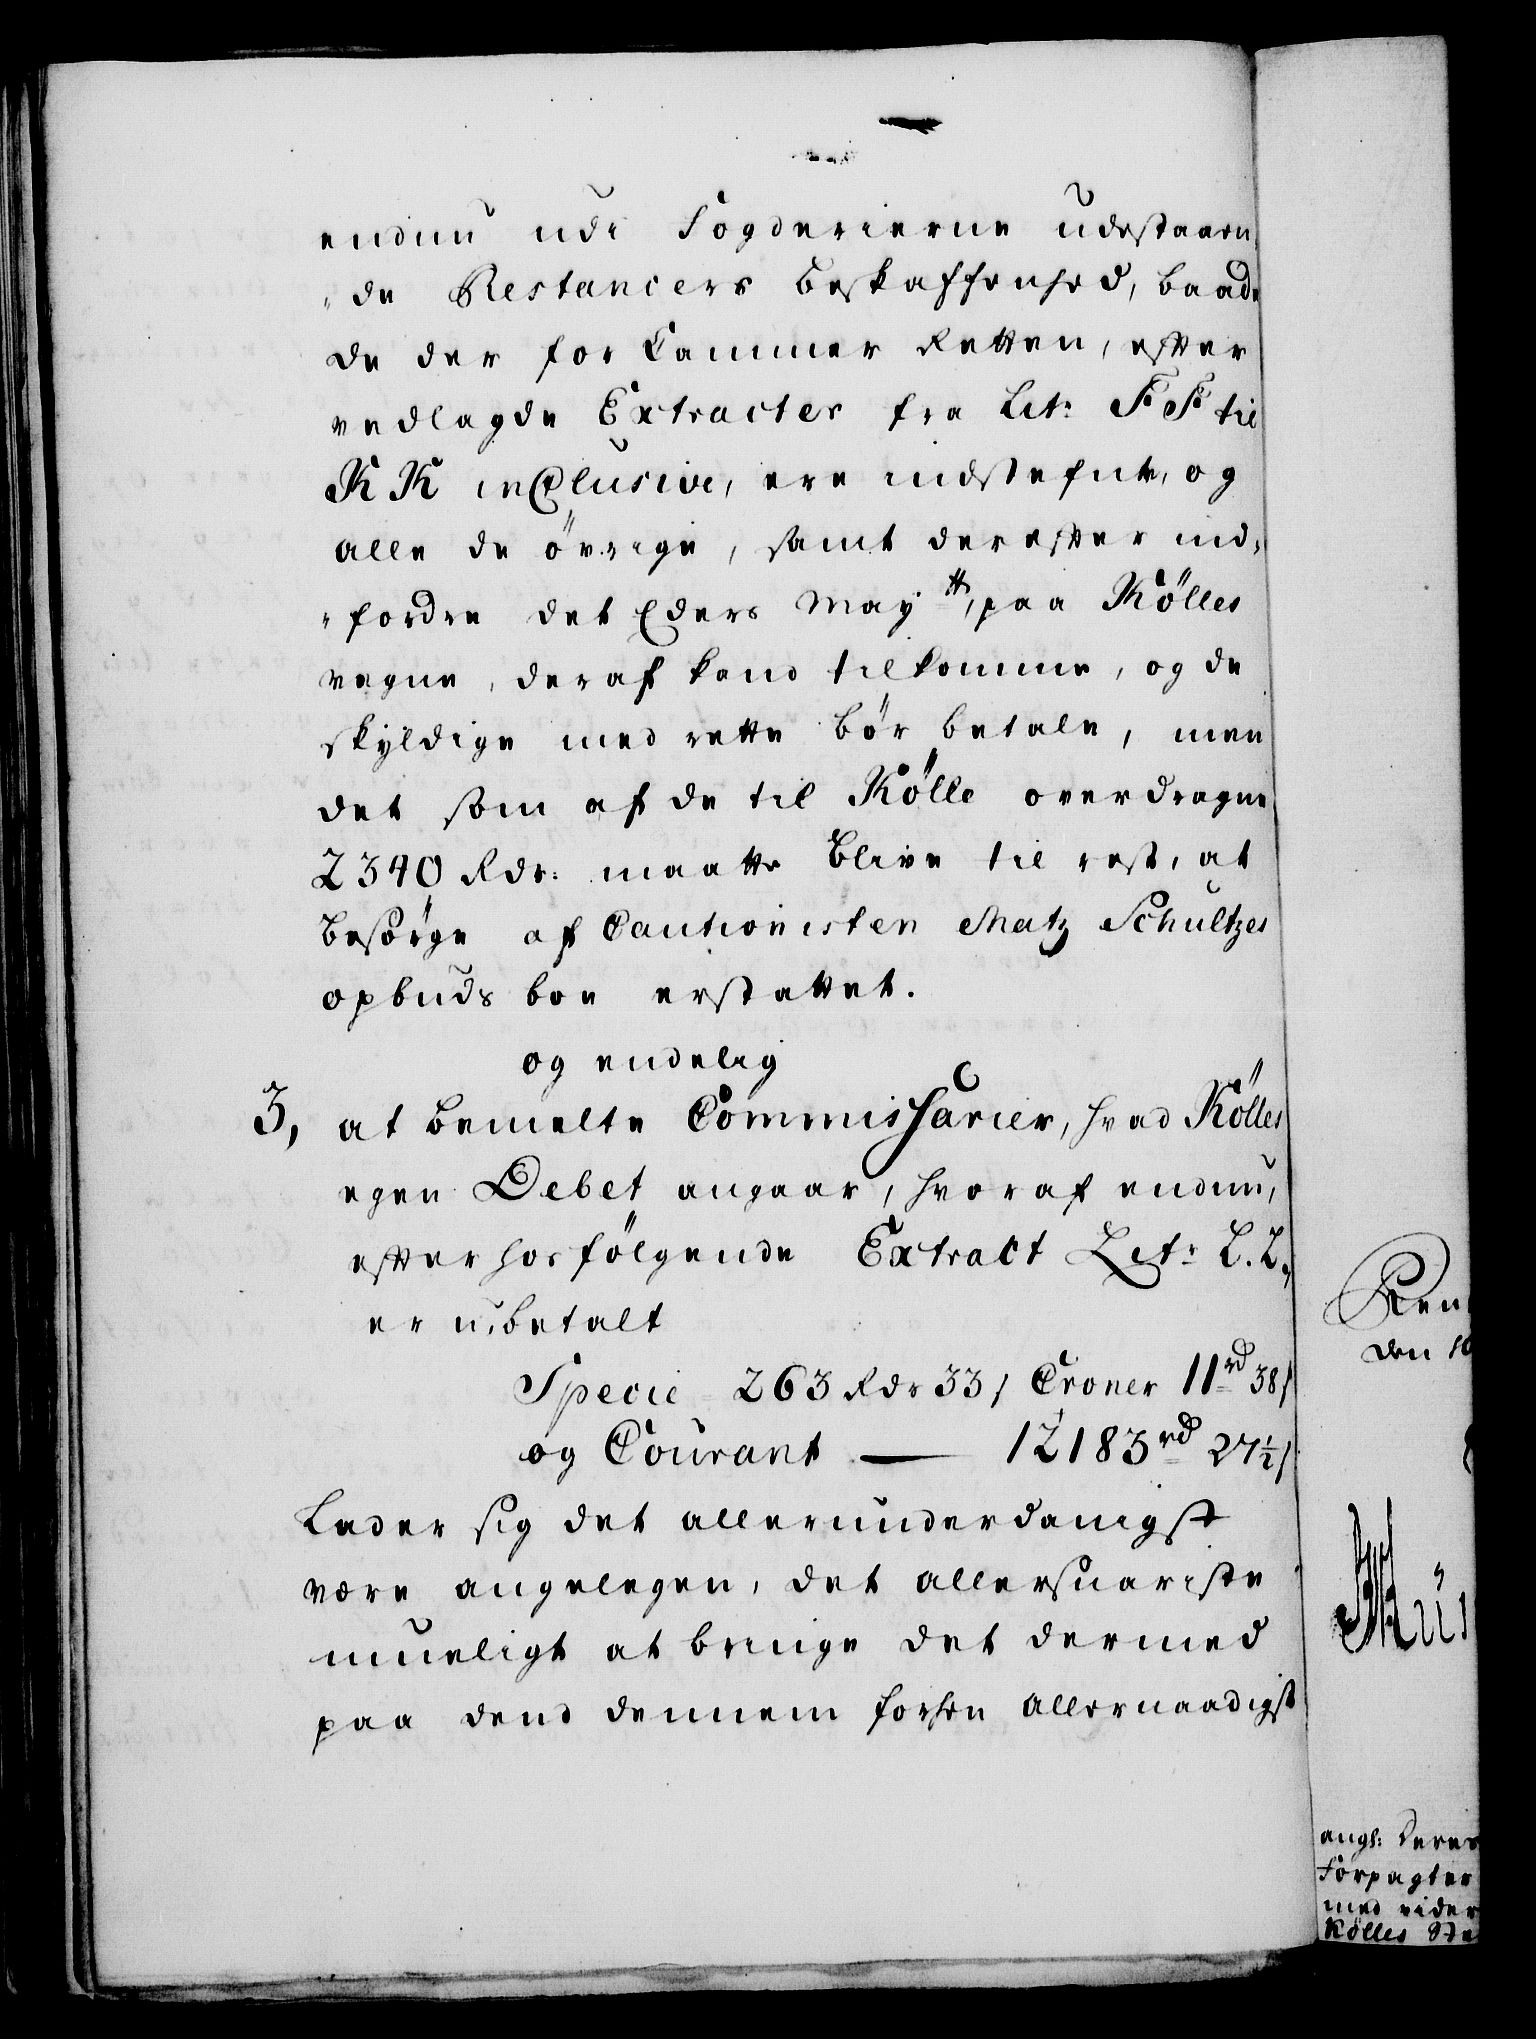 endnu udi Fogderierne udestaaen¬
„de Restancers beskaffenhed, baade
de der for Cammer Retten, efter
vedlagde Extracter fra Lit: FF til
KK inclusive, ere indstefnte, og
alle de övrige, samt derefter ind¬
„fordre det Eders Mayt:, paa Kölles
vegne, deraf kand tilkomme, og de
skyldige med rette bör betale, men
det som af de til Kölle overdragne
2340 Rdr: maatte blive til rest, at
besörge af Cautionisten Matz Schultzes
opbuds boe erstattet.
og endelig
3, at bemelte Commissarier, hvad Kölles
egen Debet angaar, hvoraf endnu,
efter hosfölgende Extract Litr: L.L.,
er ubetalt
Specie 263 Rdr 33 s Croner 11rd 38 s
og Courant — 12183rd 27½ s
Lader sig det allerunderdanigst
være angelegen, det allersnariste
mueligt at bringe det dermed
paa dend dennem forhen allernaadigst
Ren
den 10
angl: Deres
Forpagter
med vider
Kölles